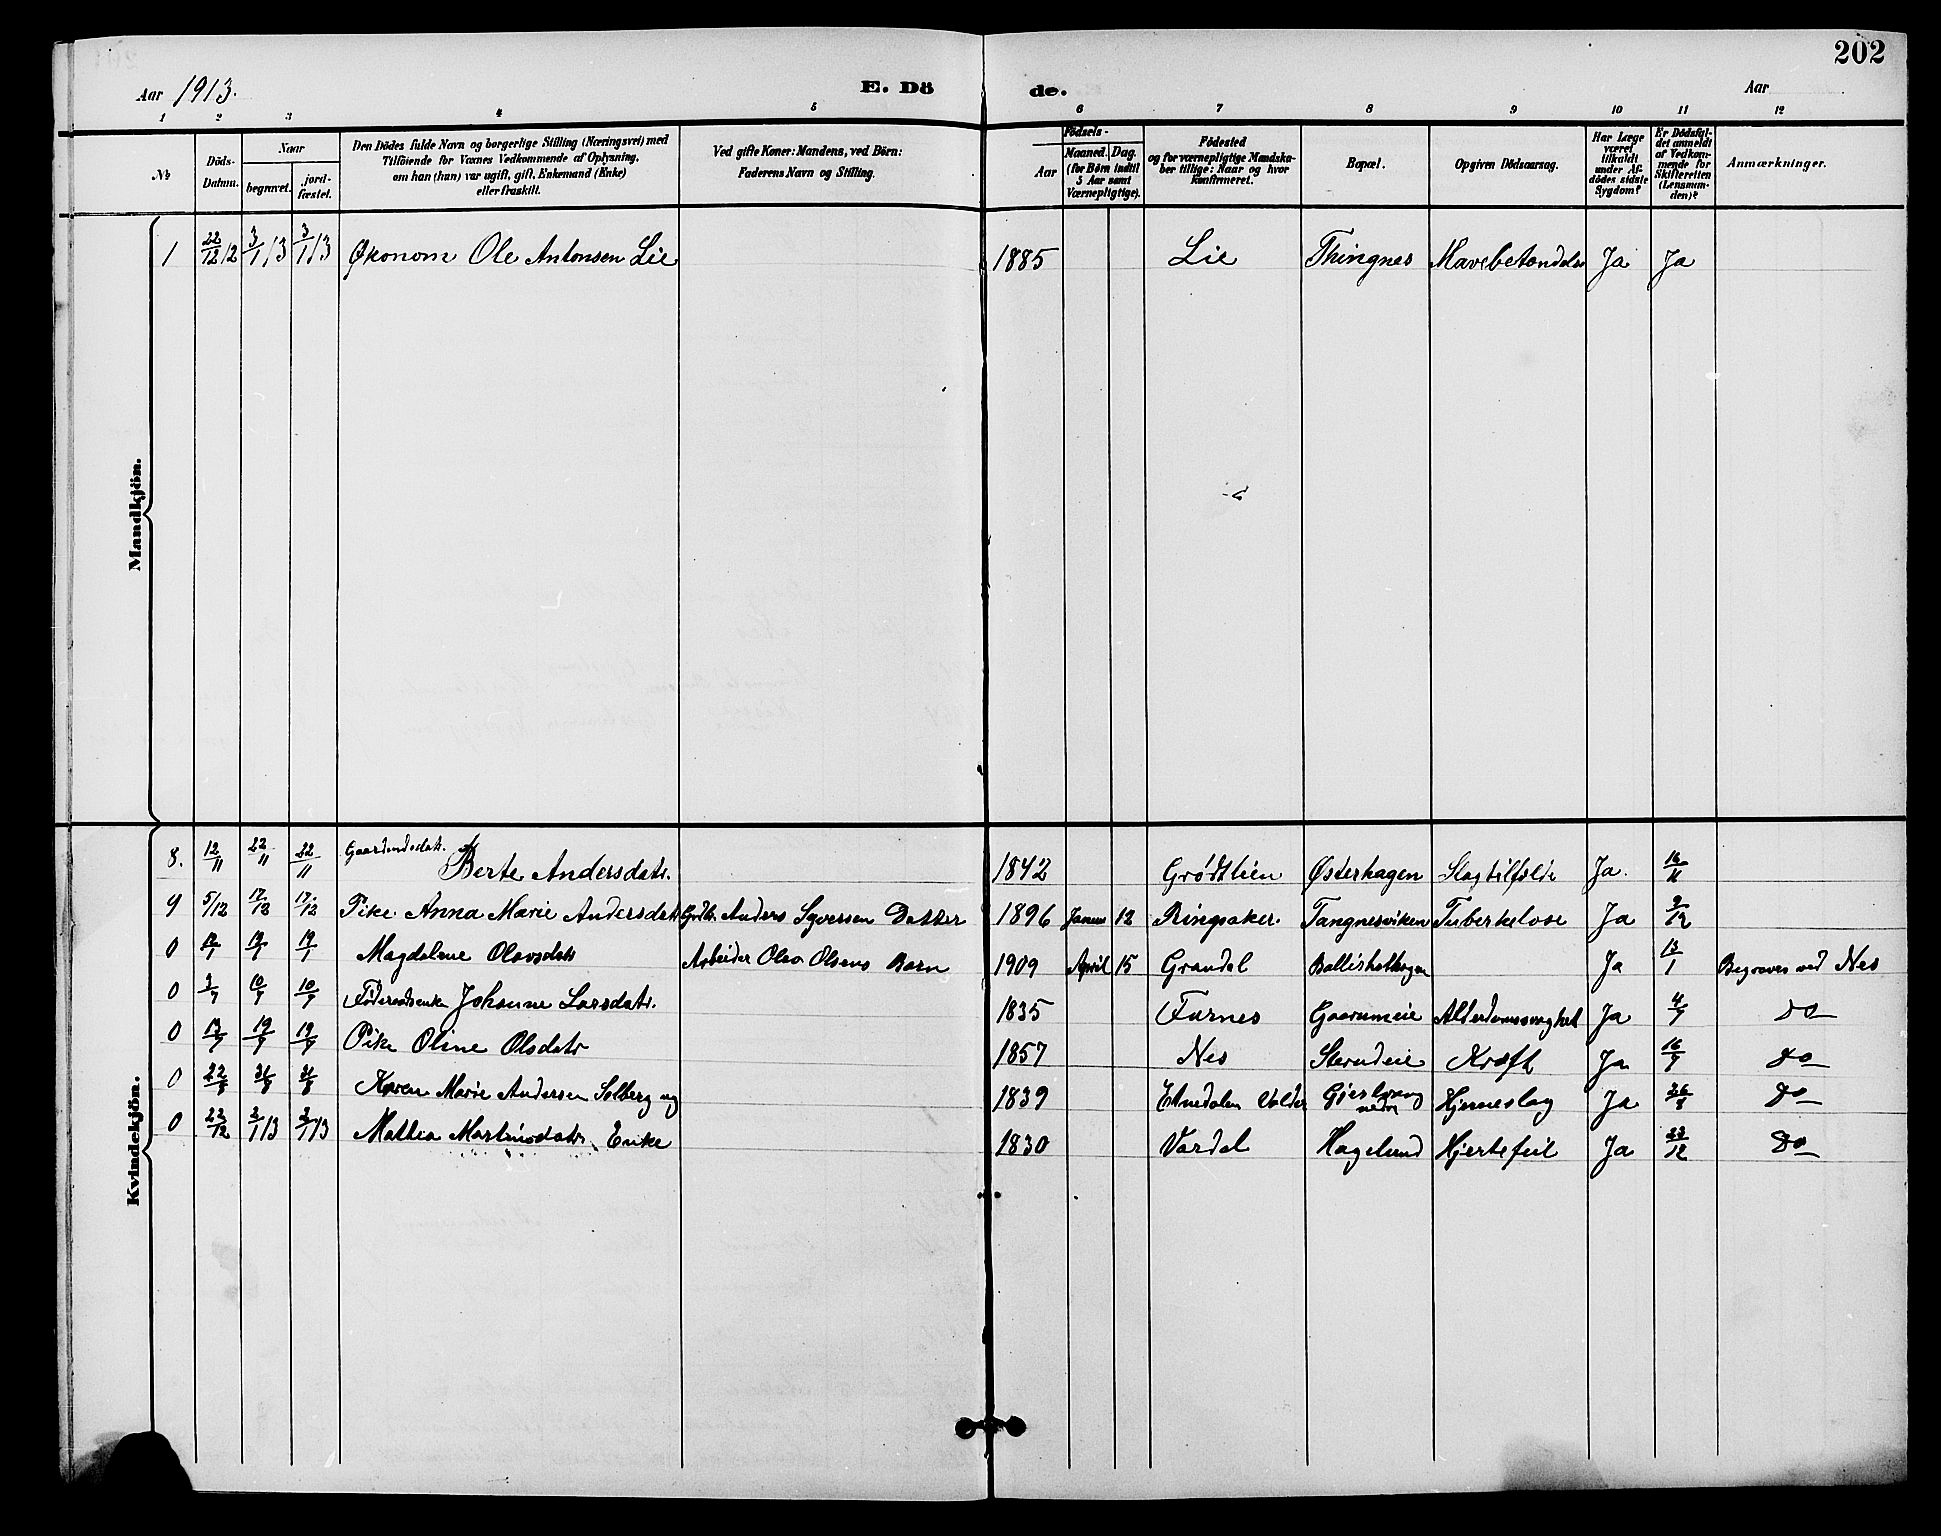 202
Aar 1913. E. Dö de. Aar
1 2 3 4 5 6 7 8 9 10 11 12
№ Döds-Datum. Naar begravet. jord-fæstet. Den Dödes fulde Navn og borgerlige Stilling (Næringsvei) med Tilföiende for Voxnes Vedkommende af Oplysning, om han (hun) var ugift, gift, Enkemand (Enke) eller fraskilt. Ved gifte Koner: Mandens, ved Börn: Faderens Navn og Stilling. Födsels- Aar Maaned. Dag. (for Börn indtil 5 Aar samt Værnepligtige). Födested og for værnepligtige Mandskaber tillige: Naar og hvor konfirmeret. Bopæl. Opgiven Dödsaarsag. Har Læge været tilkaldt under Afdödes sidste Sygdom? Er Dödsfaldet anmeldt af Vedkommende for Skifteretten (Lensmanden)? Anmærkninger.
Mandkjön.
1 22/12 12 3/1 13 3/1 13 Økonom Ole Antonsen Lie 1885 Lie Thingnes Mavebetændelse Ja Ja
Kvindekjön.
8. 12/11 22/11 22/11 Berte Andersdatr. 1842 Grødtlien Østerhagen Slagtilfælde Ja. 16/11
9 5/12 17/12 17/12 Pike Anna Marie Andersdatr Anders Syversen Datter 1896 12 Ringsaker. Tangnesviken Tuberkelose Ja 9/12
0 19/1 19/1 Magdalene Olavsdatr Arbeider Olav Olsens Barn 1909 April 15 Grandal Ja 13/1 Begraves ved Nes
0 10/7 10/7 Johanne Larsdatr. 1835 Furnes Alderdomssvaghet Ja 4/7 Do
0 19/7 19/7 Pike Oline Olsdatr 1857 Nes Kræft Ja 16/7 Do
0 22/8 31/8 31/8 Karen Marie Andersen Solberg ug 1839 Etnedalen Valdres nedre Hjerneslag Ja 26/8 Do
0 22/12 3/1 13 3/1 13 Mathea Martinusdatr. Enke 1830 Vardal Hagelund Hjertefeil Ja 23/12 Do